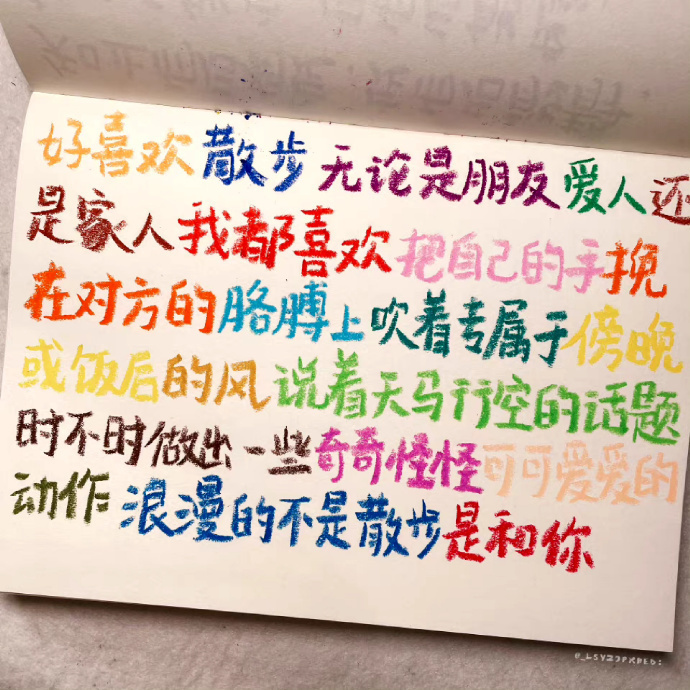 好喜欢散步无论是朋友爱人还
是家人我都喜欢把自己的手挽
在对方的胳膊上吹着专属于傍晚
或饭后的风说着天马行空的话题
时不时做出一些奇奇怪怪可可爱爱的
动作浪漫的不是散步是和你